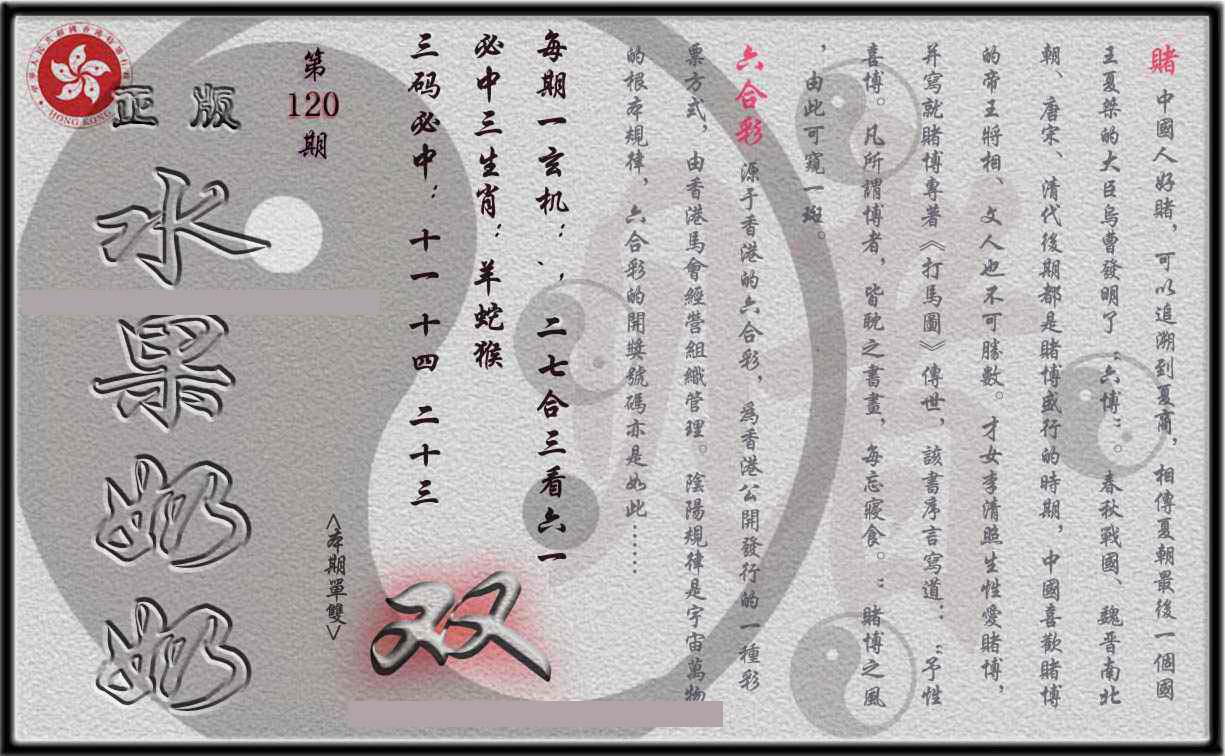 賭 中國人好賭，可以追溯到夏商，相傳夏朝最後一個國
王夏桀的大臣烏曹發明了“六博”。春秋戰國、魏晋南北
朝、唐宋、清代後期都是賭博盛行的時期，中國喜歡賭博
的帝王將相、文人也不可勝數。才女李清照生性愛賭博，
并寫就賭博專著《打馬圖》傳世，該書序言寫道：“予性
喜博。凡所謂博者，皆耽之書畫，每忘寢食。”賭博之風
，由此可窺一斑。
六合彩 源于香港的六合彩，爲香港公開發行的一種彩
票方式，由香港馬會經營組織管理。陰陽規律是宇宙萬物
的根本規律，六合彩的開獎號碼亦是如此……
每期一玄机：、，二七合三看六一
必中三生肖：羊蛇猴
三码必中：十一 十四 二十三
双
<本期單雙>
第
120
期
正版
水果奶奶
HONG KONG